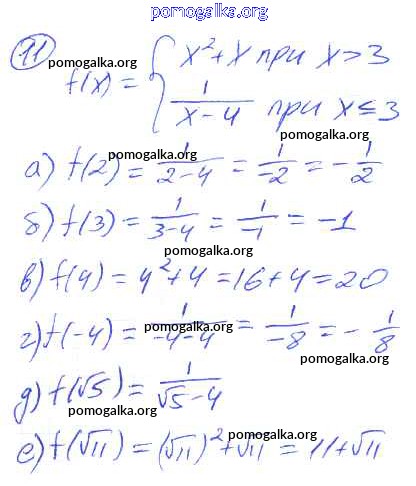 pomogalka.org
11 pomogalka.org
f(x) = { x² + x при x > 3
1/(x-4) при x ≤ 3
pomogalka.org
pomogalka.org
а) f(2) = 1/(2-4) = 1/-2 = -1/2
pomogalka.org
б) f(3) = 1/(3-4) = 1/-1 = -1
pomogalka.org
в) f(4) = 4² + 4 = 16 + 4 = 20
г) f(-4) = 1/(-4-4) = 1/-8 = -1/8
pomogalka.org
pomogalka.org
д) f(√5) = 1/(√5-4)
pomogalka.org
pomogalka.org
е) f(√11) = (√11)² + √11 = 11 + √11